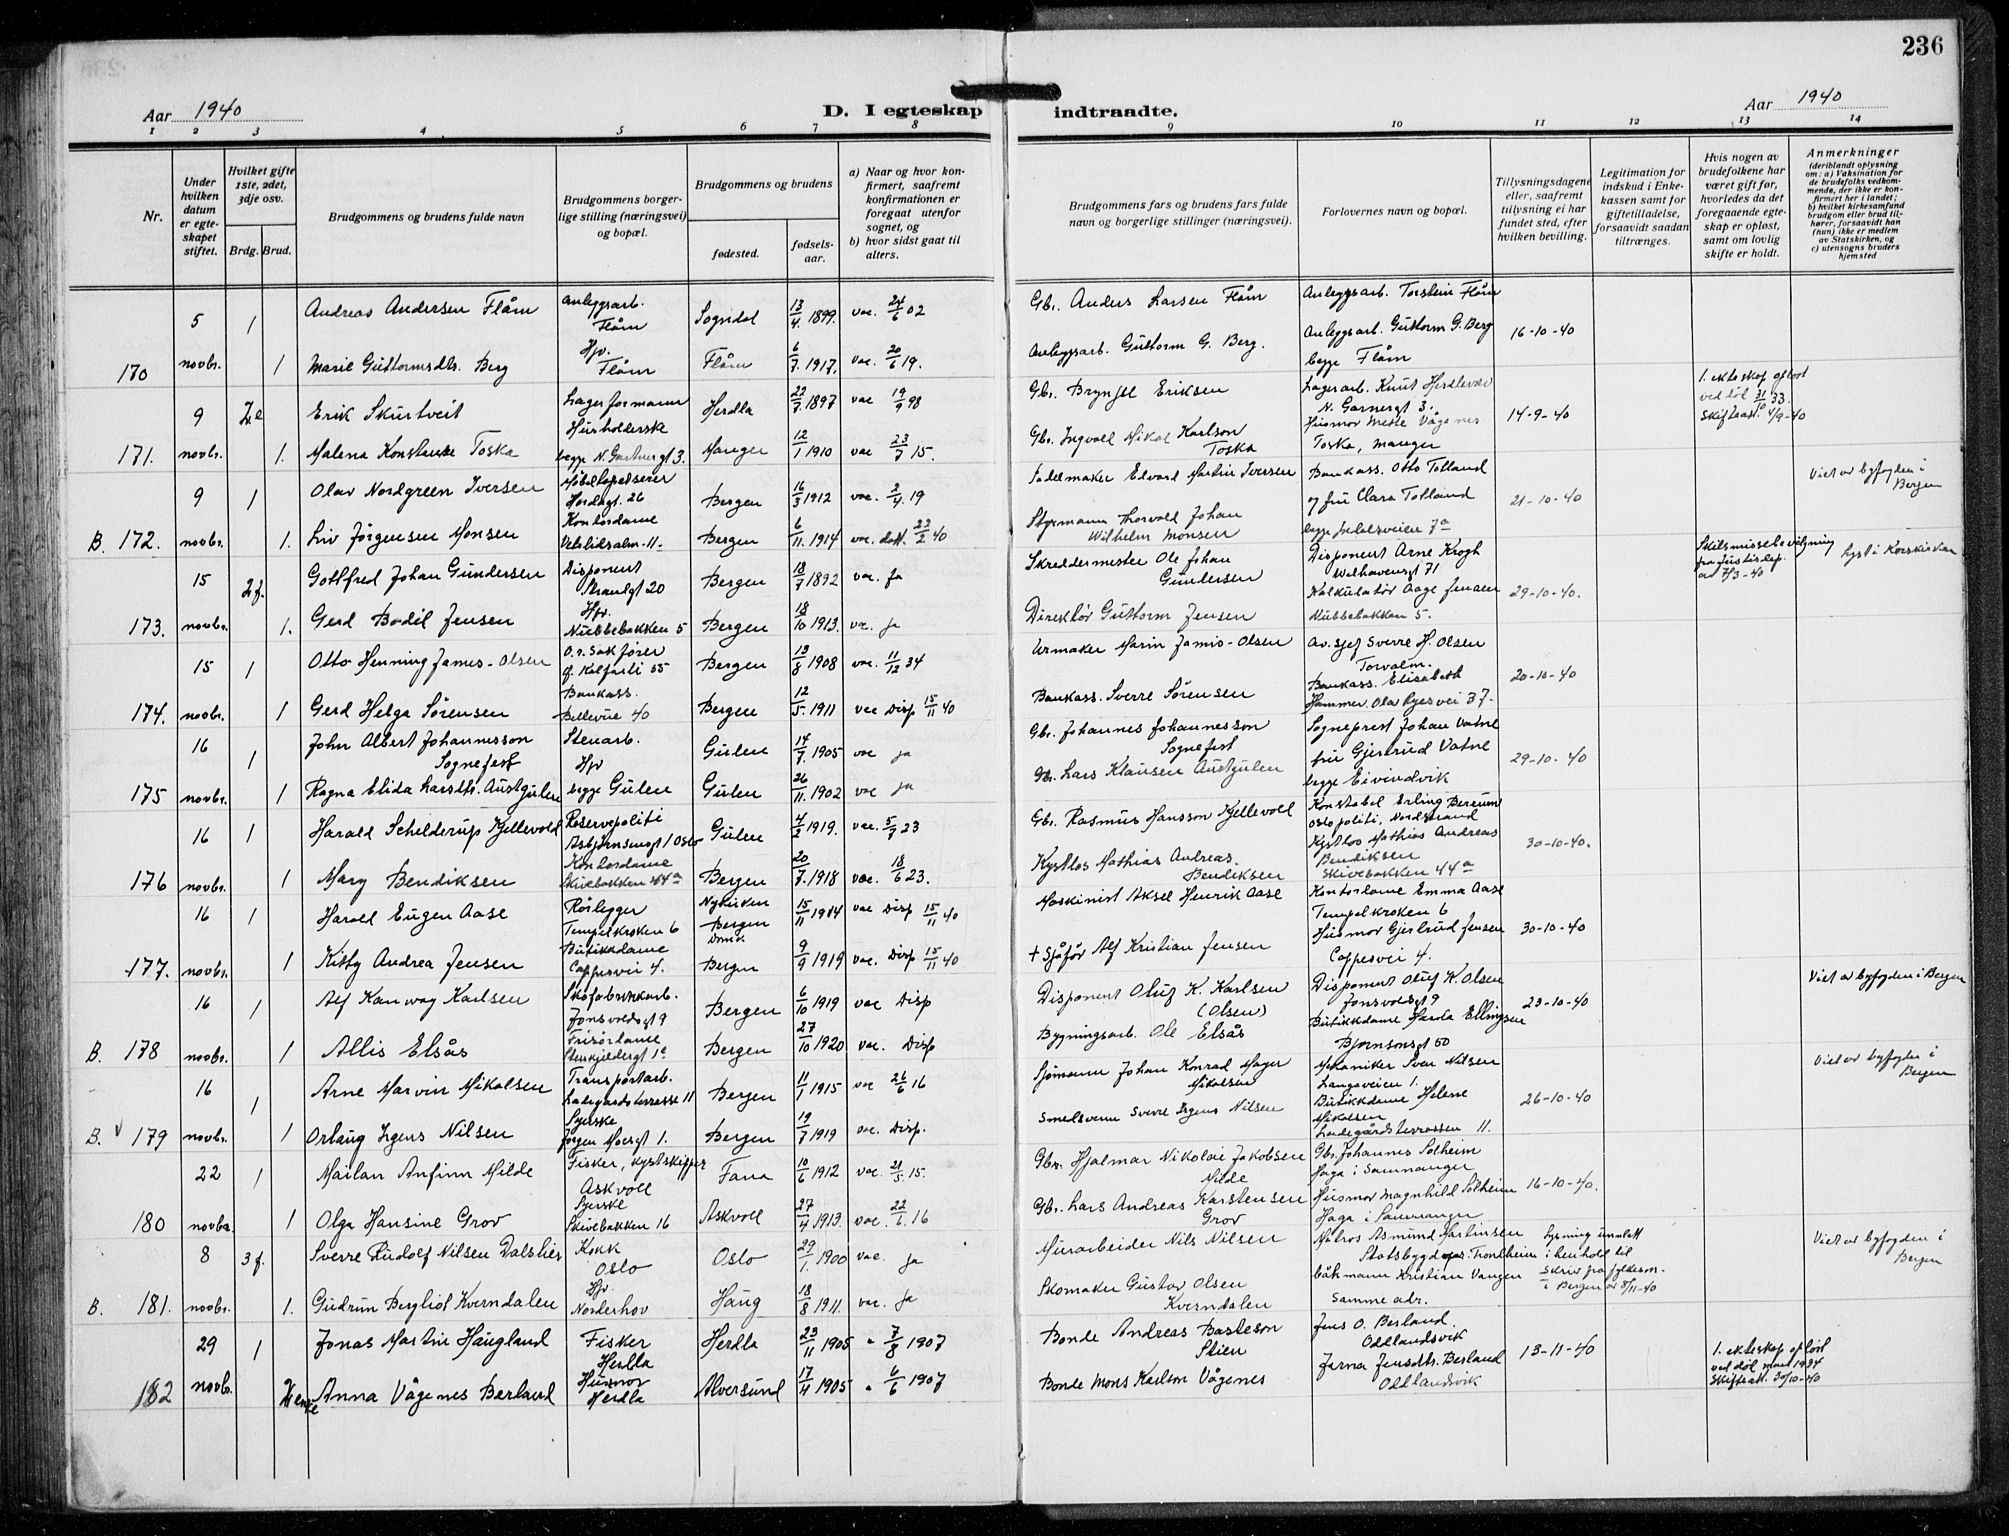 236
Aar 1940
D. I egteskap indtraadte.
Aar 1940
1 2 3 4 5 6 7 8 9 10 11 12 13 14
Nr.
Under hvilken datum er egteskapet stiftet.
Hvilket gifte 1ste, 2det, 3dje osv.
Brdg. Brud.
Brudgommens og brudens fulde navn
Brudgommens borgerlige stilling (næringsvei) og bopæl.
Brudgommens og brudens
fødested.
fødselsaar.
a) Naar og hvor konfirmert, saafremt konfirmationen er foregaat utenfor sognet, og
b) hvor sidst gaat til alters.
Brudgommens fars og brudens fars fulde navn og borgerlige stillinger (næringsvei).
Forlovernes navn og bopæl.
Tillysningsdagene eller, saafremt tillysning ei har fundet sted, efter hvilken bevilling.
Legitimation for indskud i Enkekassen samt for giftetilladelse, forsaavidt saadan tiltrænges.
Hvis nogen av brudefolkene har været gift før, hvorledes da det foregaaende egteskap er opløst, samt om lovlig skifte er holdt.
Anmerkninger
(deriblandt oplysning om: a) Vaksination for de brudefolks vedkommende, der ikke er konfirmert her i landet;
b) hvilket kirkesamfund brudgom eller brud tilhører, forsaavidt han (hun) ikke er medlem av Statskirken, og
c) utensogns bruders hjemsted
5 1 Andreas Andersen Flåm Anleggsarb. Flåm Sogndal 13/4 1899. vac. 24/6 02 Gbr. Anders Larsen Flåm Anleggsarb. Torstein Flåm
170 novbr. 1 Marie Guttormsdtr. Berg Hjv. Flåm Flåm 6/7 1917. vac. 20/6 19. Anleggsarb. Guttorm G. Berg. Anleggsarb. Guttorm G. Berg begge Flåm 16-10-40
9 2e Erik Skurtveit Lagerformann Herdla 22/7 1897 vac 19/9 98 Gbr. Brynjel Eriksen Lagerarb. Knut N. Garnergt 3. 14-9-40 1. ekteskap opløst ved 31/10 33. Skifteatt. 4/9-40
171. novbr. 1. Malena Konstanse Toska Husholderske begge N. Garnergt 3. Manger 12/1 1910 vac 23/7 15. Gbr. Ingvald Nikol. Karlson Toska Husmor Mette Vågenes Toska, Manger
9 1 Olav Nordgreen Iversen Møbeltapetserer Hordagt. 26 Bergen 16/3 1912 vac. 2/4 19 Sadelmaker Edvard Martin Iversen Bankass. Otto Tolland 21-10-40 Viet av byfogden i Bergen
B. 172. novbr. 1. Liv Jørgensen Monsen Kontordame Bergen 6/11. 1914 vac. 22/2 40 Styrmann Thorvald Johan Wilhelm Monsen og fru Clara Tolland
15 2f. Gottfred Johan Gundersen Disponent Strandgt 20 Bergen 18/7 1892 vac. ja Skreddermester Ole Johan Gundersen Disponent Arne Krogh Welhavensgt 71 29-10-40. Skilsmissebevilgning fra Justisdep. av 7/3-40 Lyst i Korskirken
173. novbr. 1. Gerd Bodil Jensen Hjv. Nubbebakken 5 Bergen 18/10 1913. vac. ja Direktør Guttorm Jensen Kalkulatør Aage Jensen Nubbebakken 5.
15 1 Otto Henning James-Olsen O.r. Sakfører Kalfarli 55 Bergen 13/8 1908 vac. 11/12 34 Urmaker Marin James-Olsen Av. sjef Sverre H. Olsen Torvalm. 20-10-40
174. novbr. 1 Gerd Helga Sørensen Bankass. Bellevue 40 Bergen 12/5 1911 vac Disp 15/11 40 Bankass. Sverre Sørensen Bankass. Elisabeth Hammer Olav Ryes vei 37.
16 1 John Albert Johannesson Sognefest Stenarb. Gulen 14/7. 1905 vac ja Gbr. Johannes Johannesson Sognefest Sogneprest Johan Vatne 29-10-40
175 novbr. 1 Ragna Elida Larsdtr. Austgulen Hjv begge Gulen Gulen 26/11. 1902 vac ja Gbr. Lars Klausen Austgulen fru Gjertrud Vatne begge Eivindvik
16 1 Harald Schelderup Kjellevold Reservepoliti Asbjørnsensgt 1 Oslo Gulen 4/2 1919. vac. 5/9 23 Gbr. Rasmus Hansson Kjellevold Konstabel Erling Bereum Oslo politi, Nordstrand 30-10-40.
176 novbr. 1 Mary Bendiksen Kontordame Skivebakken 44a Bergen 20/7. 1918 vac. 18/6 23. Kystlos Mathias Andreas. Bendiksen Kystlos Mathias Andreas Bendiksen Skivebakken 44a
16 1 Harald Eugen Aase Rørlegger Tempelkroken 6 Nykirken Bergen Domk 15/11 1914 vac Disp 15/11 40 Maskinist Aksel Henrik Aase Kontordame Emma Aase Tempelkroken 6 30-10-40
177. novbr. 1 Kitty Andrea Jensen Butikkdame Cappesvei 4. Bergen 9/9 1919 vac. Disp 15/11 40 + Sjåfør Alf Kristian Jensen Husmor Gjertrud Jensen Cappesvei 4.
16 1 Alf Kanwag Karlsen Skofabrikkarb. Jonsvoldsgt 9 Bergen 6/10 1919 vac Disp Disponent Oluf K. Karlsen (Olsen) Disponent Oluf K. Olsen Jonsvoldsgt 9 23-10-40 Viet av byfogden i Bergen
B. 178 novbr. 1 Allis Elsås Frisørdame Stenkjelergt 1c Bergen 27/10 1920 vac. Disp Bygningsarb. Ole Elsås Butikkdame Harda Ellingsen Bjørnsonsgt 50
16 1 Arne Marvin Mikalsen Transportarb. Ladegårdsterrasse 11 Bergen 11/1 1915 vac 26/6 16 Sjømann Johan Konrad Mager Mikalsen Mekaniker Sven Nilsen Langaveien 1. 26-10-40 Viet av byfogden i Bergen
B. v 179 novbr. 1 Orlaug Irgens Nilsen Syerske Jørgen Moesgt 1. Bergen 19/7 1919 vac. Disp. Smedsvenn Sverre Irgens Nilsen Butikkdame Helene Mikalsen Ladegårdsterrassen 11.
22 1 Mailan Anfinn Milde Fisker, kystskipper Askvoll Fana 10/6 1912 vac 21/5. 15. Gbr. Hjalmar Nikolai Jakobsen Milde Gbr. Johannes Solheim Haga i Samnanger 16-10-40.
180 novbr. 1 Olga Hansine Grov Syerske Skivebakken 16 Askvoll 27/4 1913. vac. 22/6. 16 Gbr. Lars Andreas Karstensen Grov Husmor Magnhild Solheim Haga i Samnanger
8 3f. Sverre Rudolf Nilsen Dalslier Kokk Oslo Oslo 29/1. 1900 vac. ja Murarbeider Nils Nilsen Matros Asmund Martinsen Statsbygdgt. Trondheim Lysning unnlatt i henhold til skriv fra fylkesm. i Bergen av 8/11-40 Viet av byfogden i Bergen
B. 181. novbr. 1. Gudrun Bergliot Kverndalen Hjv. Norderhov Haug 18/8 1911 vac. ja Skomaker Gustav Olsen Kverndalen båtsmann Kristian Vangen Samme adr.
29 1 Jonas Martin Haugland Fisker Herdla Herdla 23/11 1905 " 7/8 1907 Bonde Andreas Basteson Stien Jens O. Berland. Odlandsvik 13-11-40 1. ekteskap opløst ved død mars 1934 Skifteatt. 30/10-40
182 novbr. 2 enke Anna Vågenes Berland Husmor Herdla Alversund 17/4 1905 " 6/6 1907 Bonde Mons Karlson Vågenes Jarma Jensdtr. Berland Odlandsvik